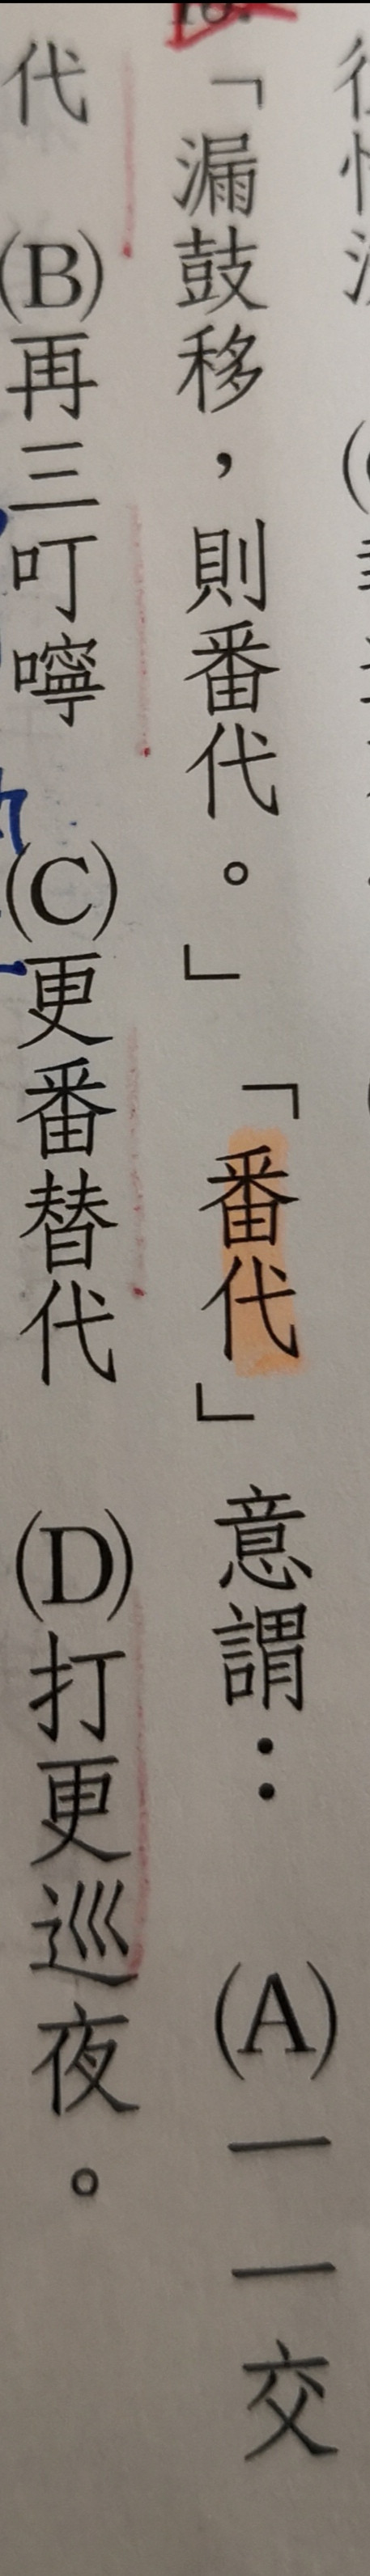 「漏鼓移，則番代。」「番代」意謂：(A)一一交
代 (B)再三叮嚀 (C)更番替代 (D)打更巡夜。